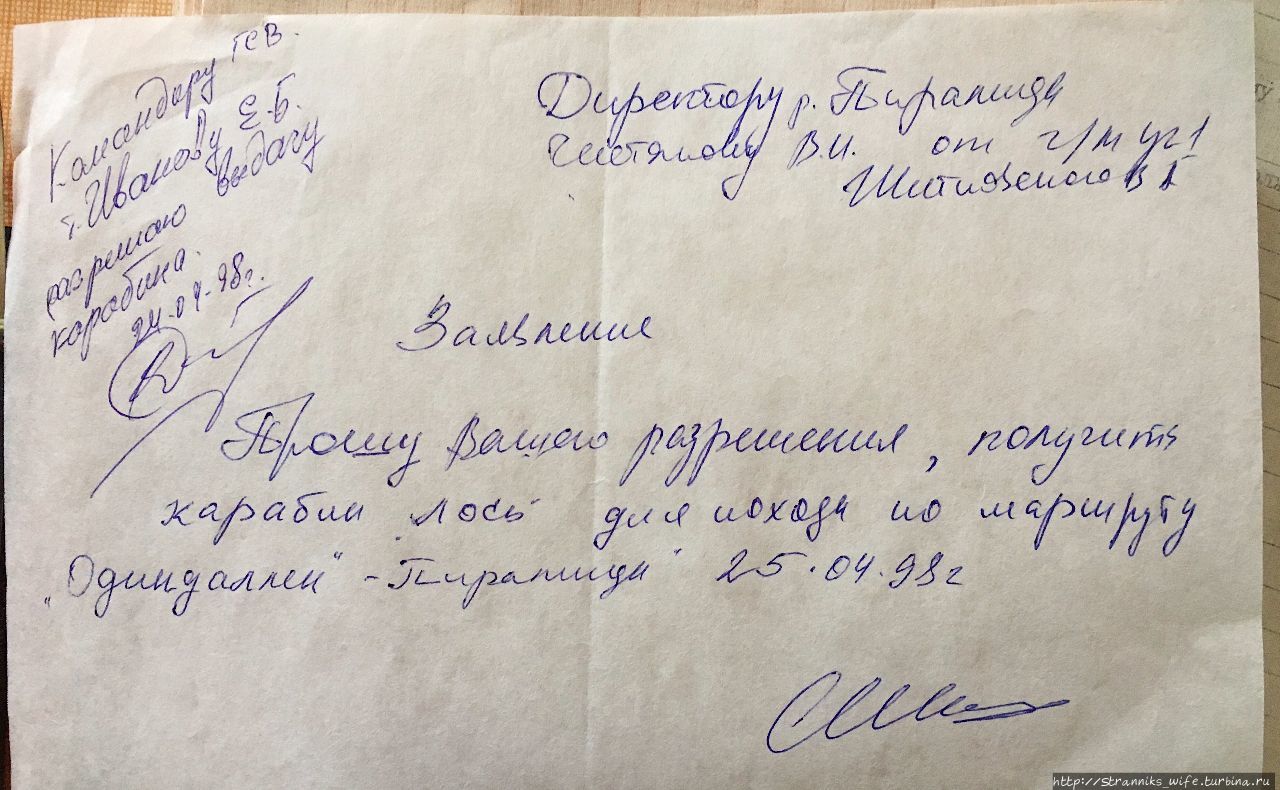 Командору ГСВ.
т. Иванову Е.Б.
разрешаю выдачу
карабина.
24.04.98г.
Директору р. Пирамида
Чистякову В.И. от г/м уч 1
Заявление
Прошу Вашего разрешения, получить
карабин лось для похода по маршруту
"Одиндаллен" - Пирамида" 25.04.98г
http://stranniks_wife.turbina.ru